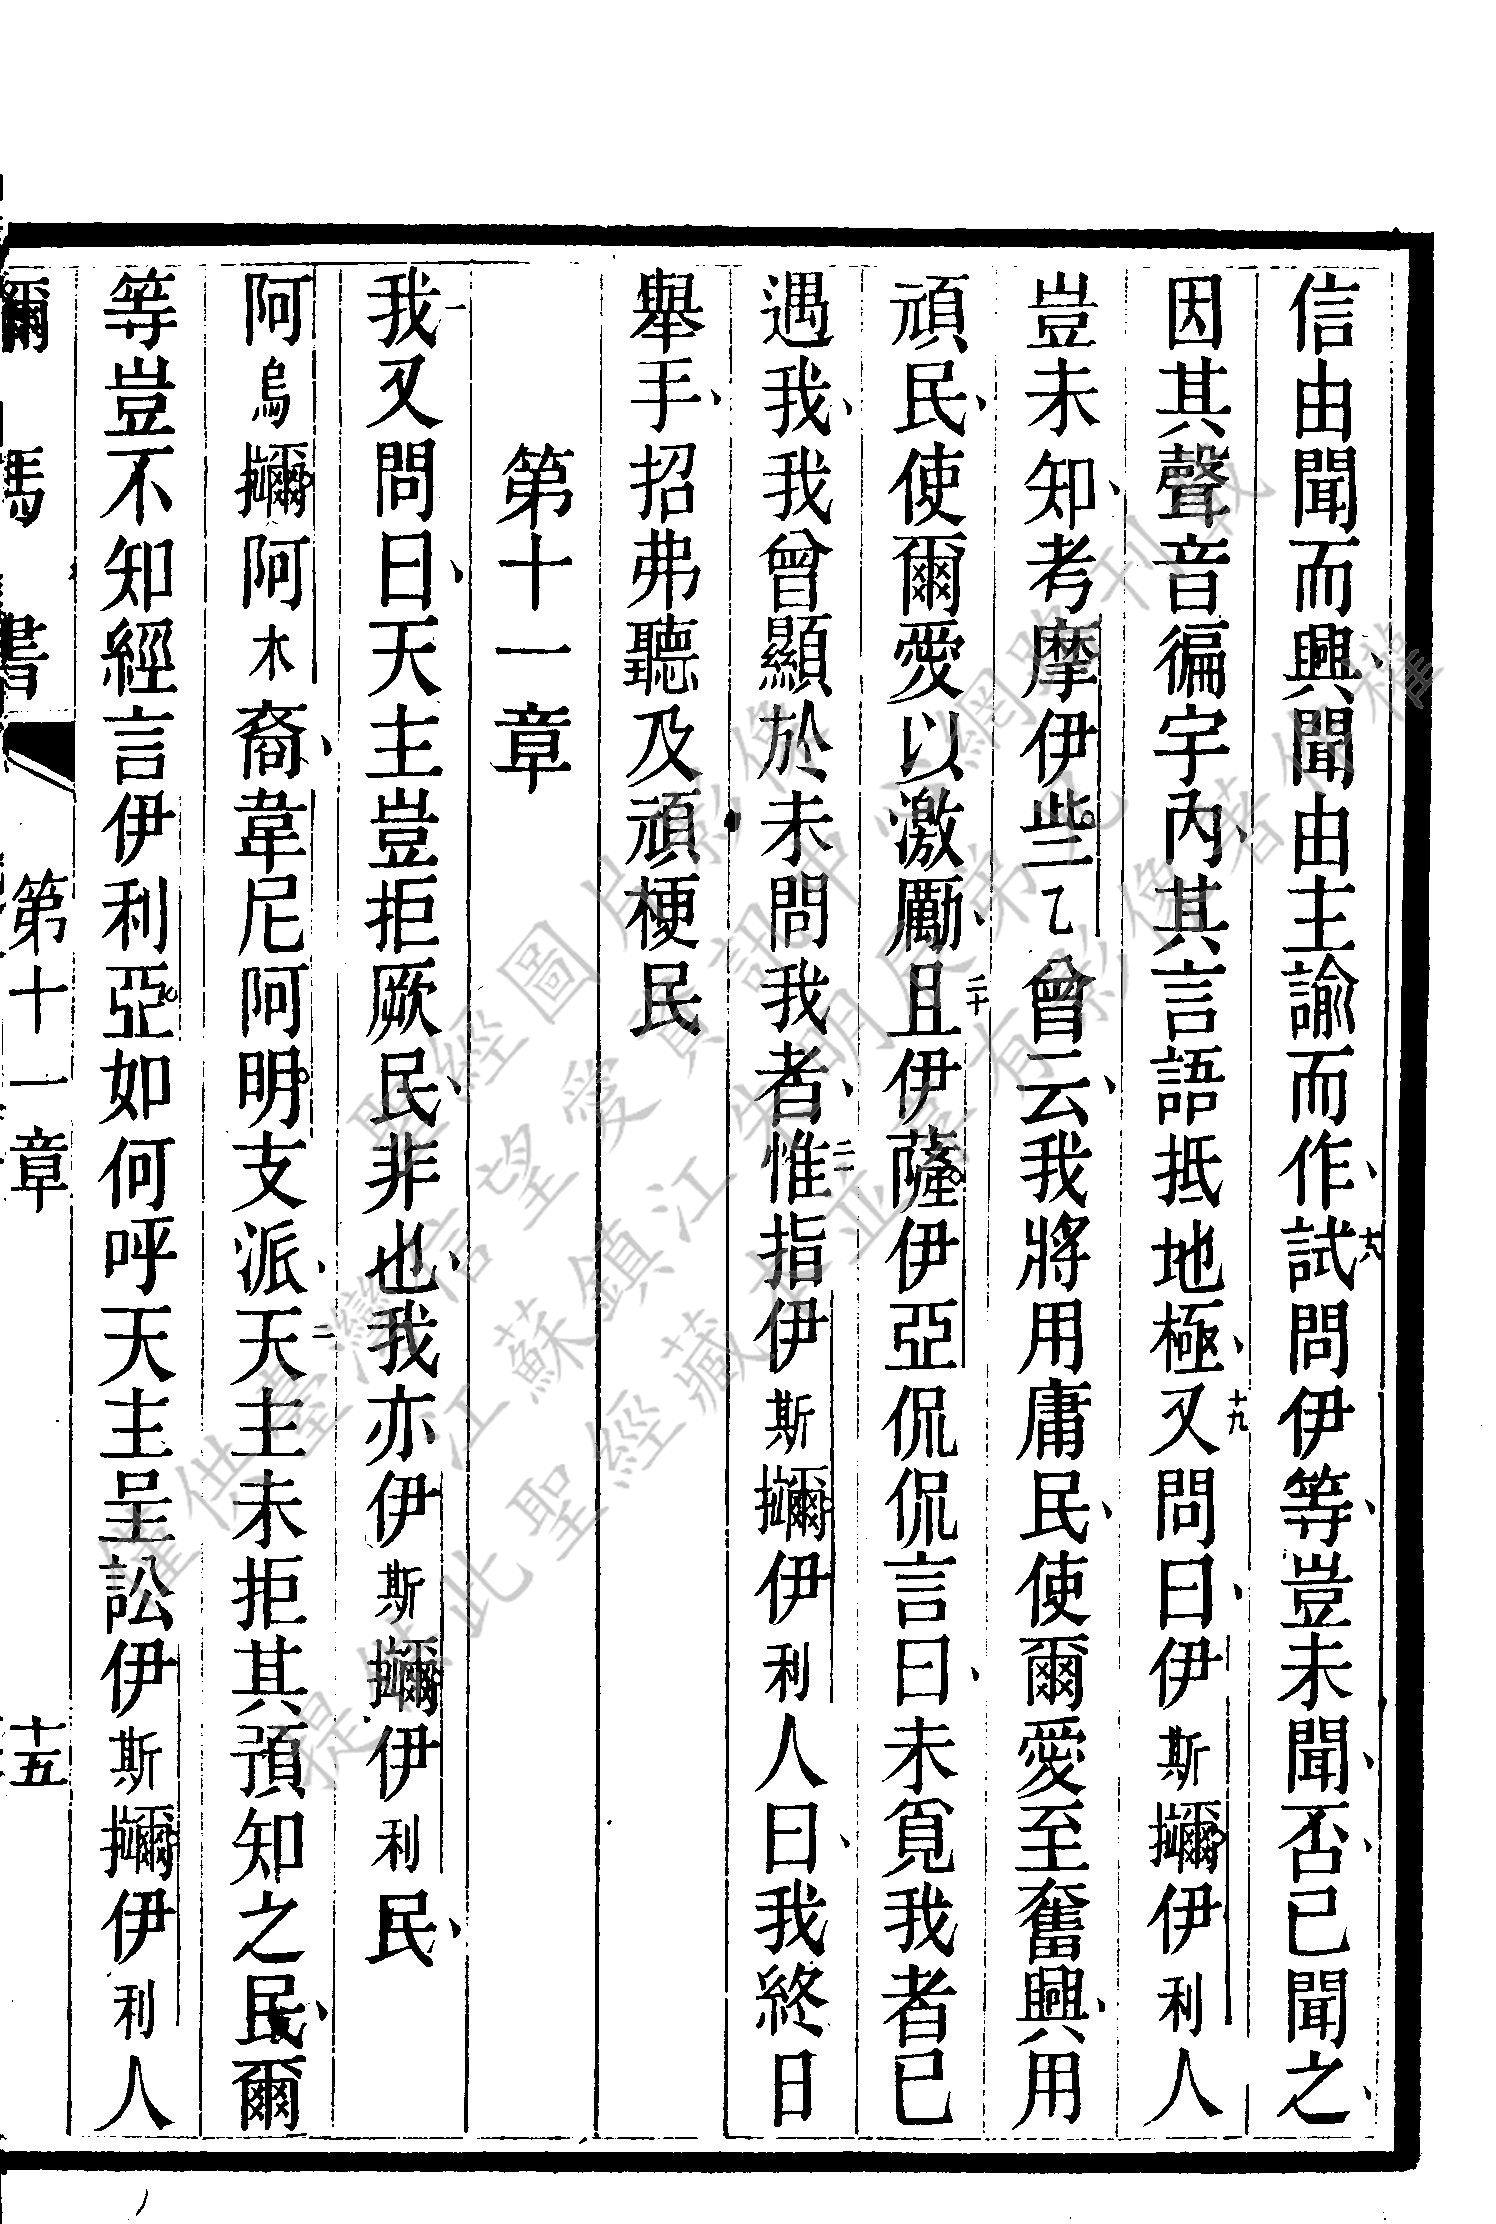 信由聞而興聞由主諭而作試十八問伊等豈未聞否已聞之
因其聲音徧宇內其言語抵地極又十九問曰伊斯𭡫伊利人
豈未知考摩伊些乙曾云我將用庸民使爾愛至奮興用
頑民使爾愛以激勵且二十伊薩伊亞侃侃言曰未覓我者已
遇我我曾顯於未問我者惟二一指伊斯𭡫伊利人曰我終日
舉手招弗聽及頑梗民
第十一章
我一又問曰天主豈拒厥民非也我亦伊斯𭡫伊利民
阿烏𭡫阿木裔韋尼阿明支派天二主未拒其預知之民爾
等豈不知經言伊利亞如何呼天主呈訟伊斯𭡫伊利人
爾瑪書 第十一章 十五